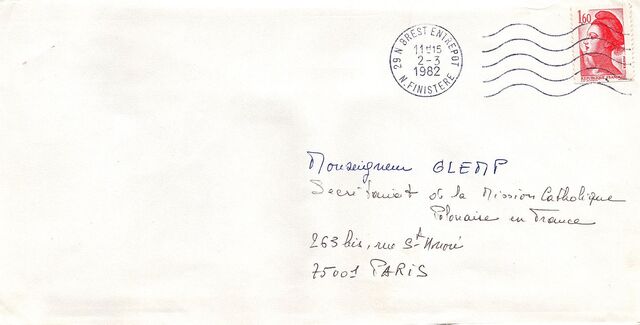 29 N BREST ENTREPOT
11H15
2-3
1982
N. FINISTERE
1,60
REPUBLIQUE FRANCAISE
Monseigneur GLEMP
Secrétariat de la Mission Catholique
Polonaise en France
263 bis, rue St Honoré
75001 PARIS